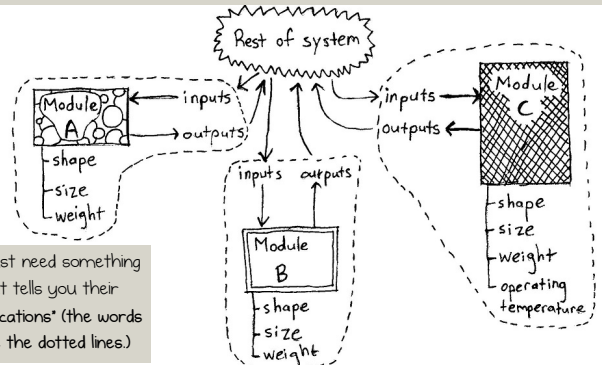 Rest of system
Module
A
inputs
outputs
shape
size
weight
inputs outputs
Module
B
shape
size
weight
inputs
outputs
Module
C
shape
size
weight
operating
temperature
st need something
t tells you their
cations" (the words
the dotted lines.)